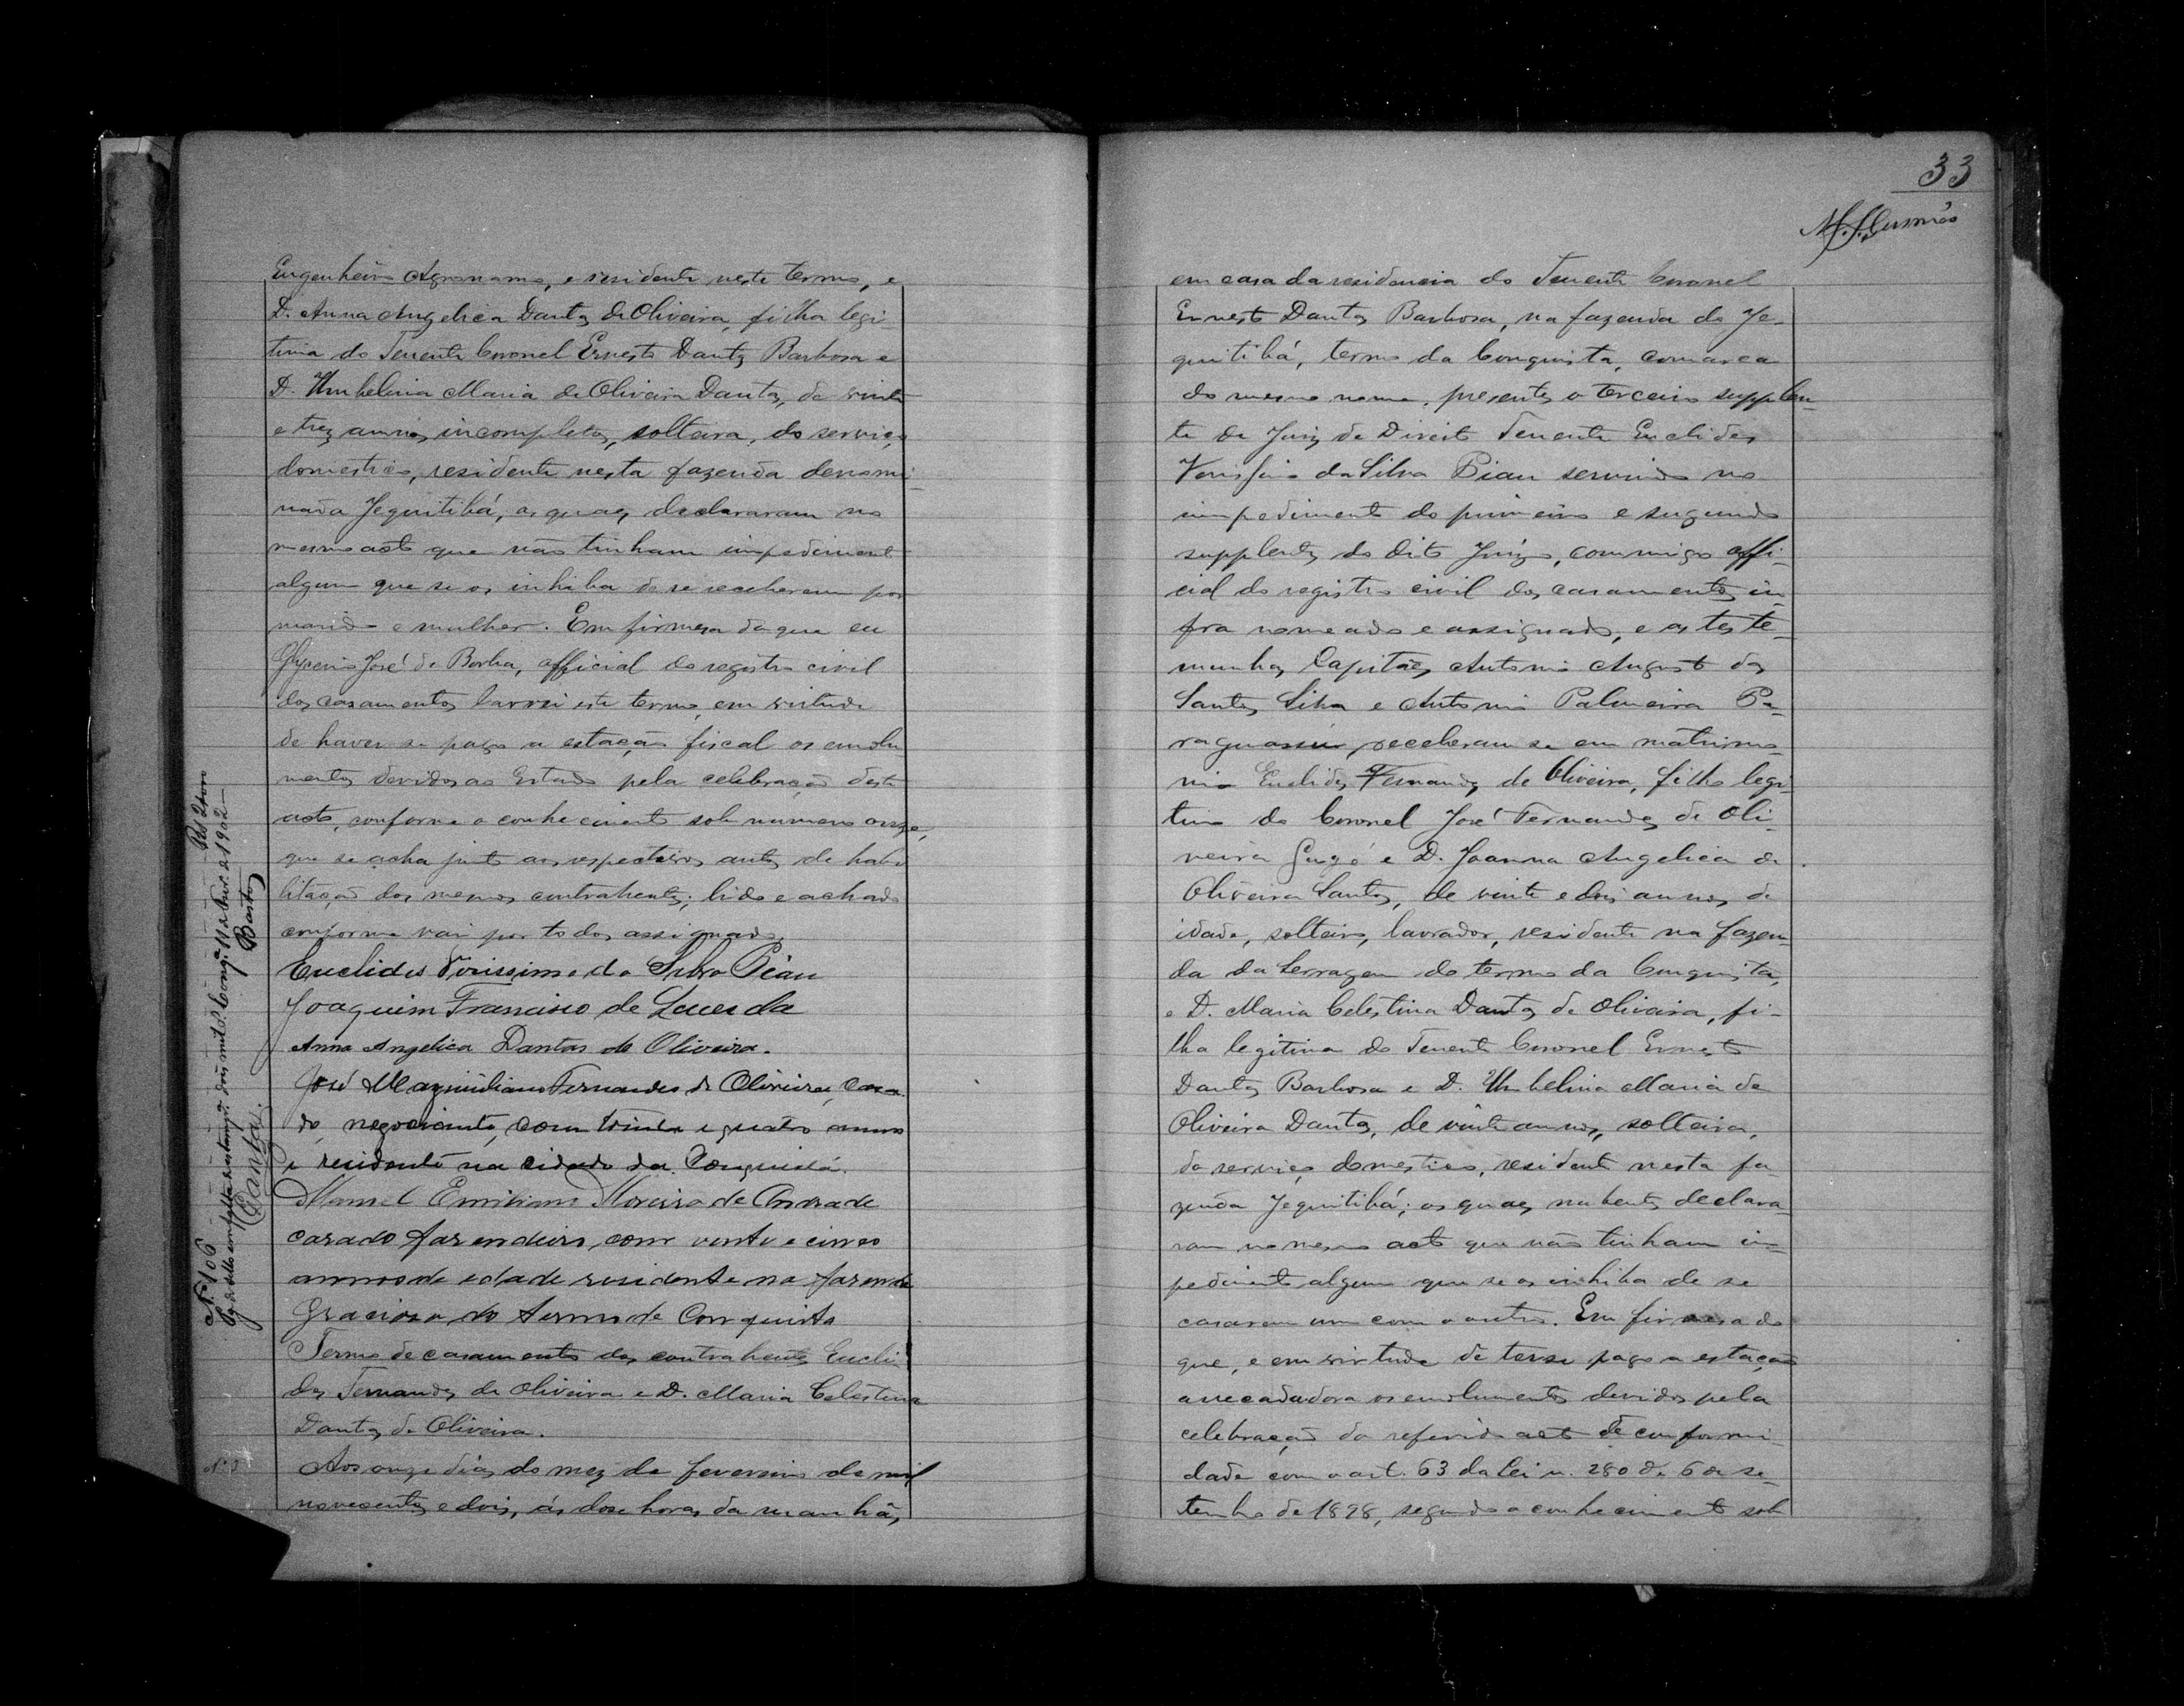 Engenheiro Agronomo, e residente neste termo, e
D. Anna Angelica Dantas de Oliveira, filha legi-
tima do Tenente Coronel Ernesto Dantas Barbosa e
D. Umbelina Maria de Oliveira Dantas, de vinte
e trez annos incompletos, solteira, do serviço
domestico, residente nesta fazenda denomi-
nada Jequitibá, os quaes declararam no
mesmo acto que não tinham impedimento
algum que se os inhiba de se receberem por
marido e mulher. Em firmesa do que eu
Glycerio José de Borba, official do registro civil
dos casamentos lavrei este termo, em virtude
de haver se pago a estação fiscal os emolu
mentos devidos ao Estado pela celebração deste
acto, conforme o conhecimento sob numero onze,
que se acha junto aos respectivos autos de habi
litação dos mesmos contrahentes; lido e achado
conforme vai por todos assignado.
Euclides Virissimo da Silva Piau
Joaquim Francisco de Lacerda
Anna Angelica Dantas de Oliveira.
José Maximiliano Fernandes de Oliveira, casa
do, negociante, com trinta e quatro annos
e residente na cidade da Conquista.
Manoel Emiliano Moreira de Andrade
casado fazendeiro, com vinte e cinco
annos de edade residente na fazenda
Graciosa do termo de Conquista
Termo de casamento dos contrahentes Eucli
des Fernandes de Oliveira e D. Maria Celestina
Dantas de Oliveira.
Aos onze dias do mez de fevereiro de mil
novecentos e dois, ás dose horas da manhã,
Nº 106
Rs 2#000
Pg de sello em falta de estampa dois mil rs. Conqª. 11 de Fevº. de 1902
Dantas. Bastos
33
em casa da residencia do Tenente Coronel
Ernesto Dantas Barbosa, na fazenda do Je-
quitibá, termo da Conquista, comarca
do mesmo nome, presentes o terceiro supplen-
te de Juiz de Direito Tenente Euclides
Verissimo da Silva Piau servindo no
impedimento do primeiro e segundo
supplentes do dito Juizo, commigo offi-
cial do registro civil dos casamentos in-
fra nomeado e assignado, e as teste-
munhas Capitães Antonio Augusto dos
Santos Silva e Antonio Palmeira Pa-
raguassú, receberam se em matrimo-
nio Euclides Fernandes de Oliveira, filho legi-
timo do Coronel José Fernandes de Oli-
veira Gugé e D. Joanna Angelica de
Oliveira Santos, de vinte e dois annos de
idade, solteiro, lavrador, residente na fazen-
da da Serragem do termo da Conquista,
e D. Maria Celestina Dantas de Oliveira, fi-
lha legitima do Tenente Coronel Ernesto
Dantas Barbosa e D. Umbelina Maria de
Oliveira Dantas, de vinte annos, solteira,
do serviço domestico, residente nesta fa-
zenda Jequitibá; os quaes nubentes declara-
ram no mesmo acto que não tinham im-
pedimento algum que se os inhiba de se
casarem um com o outro. Em firmesa do
que, e em virtude de terse pago a estação
arrecadadora os emolumentos devidos pela
celebração do referido acto de conformi-
dade com o art. 63 da lei n. 280 de 6 de se-
tembro de 1898, segundo o conhecimento sob